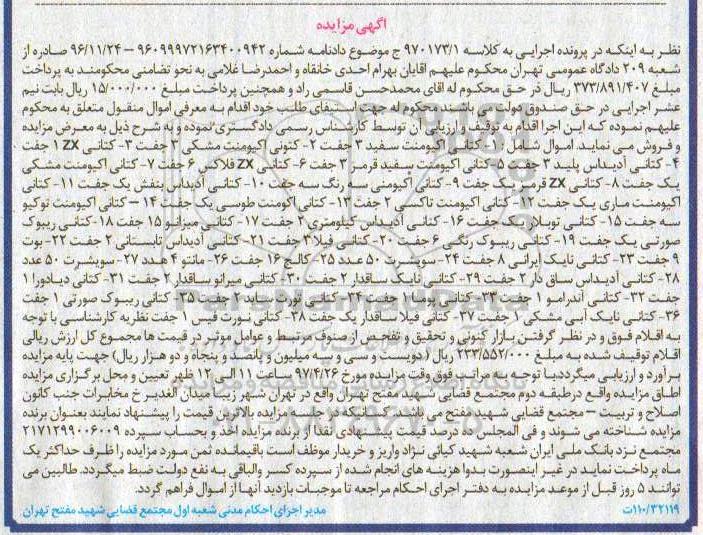 آگهی مزایده
نظر به اینکه در پرونده اجرایی به کلاسه ۹۷۰۱۷۳/۱ ج موضوع دادنامه شماره ۹۶۰۹۹۹۷۲۱۶۳۴۰۰۹۴۲ – ۹۶/۱۱/۲۴ صادره از
شعبه ۲۰۹ دادگاه عمومی تهران محکوم علیهم آقایان بهرام احدی خانقاه و احمدرضا غلامی به نحو تضامنی محکومند به پرداخت
مبلغ ۳۷۳/۸۹۱/۴۰۷ ریال در حق محکوم له آقای محمدحسن قاسمی راد و همچنین پرداخت مبلغ ۱۵/۰۰۰/۰۰۰ ریال بابت نیم
عشر اجرایی در حق صندوق دولت می باشند محکوم له جهت استیفای طلب خود اقدام به معرفی اموال منقول متعلق به محکوم
علیهم نموده که این اجرا اقدام به توقیف و ارزیابی آن توسط کارشناس رسمی دادگستری نموده و به شرح ذیل به معرض مزایده
و فروش می نماید. اموال شامل ۱- کتانی اکیومنت سفید ۳ جفت ۲- کتونی اکیومنت مشکی ۳ جفت ۳- کتانی ZX ۱ جفت
۴- کتانی آدیداس پلید ۳ جفت ۵- کتانی اکیومنت سفید قرمز ۳ جفت ۶- کتانی ZX فلاکس ۶ جفت ۷- کتانی اکیومنت مشکی
یک جفت ۸- کتانی ZX قرمز یک جفت ۹- کتانی اکیومنی سه رنگ سه جفت ۱۰- کتانی آدیداس بنفش یک جفت ۱۱- کتانی
اکیومنت ماری یک جفت ۱۲- کتانی اکیومنت تاکسی ۲ جفت ۱۳- کتانی اکومنت طوسی یک جفت ۱۴- کتانی اکیومنت توکیو
سه جفت ۱۵- کتانی توبلار یک جفت ۱۶- کتانی آدیداس کیلومتری ۲ جفت ۱۷- کتانی میزانو ۱۵ جفت ۱۸- کتانی ریبوک
صورتی یک جفت ۱۹- کتانی ریبوک رنگی ۶ جفت ۲۰- کتانی فیلا ۳ جفت ۲۱- کتانی آدیداس تابستانی ۲ جفت ۲۲- بوت
۹ جفت ۲۳- کتانی نایک ایرانی ۸ جفت ۲۴- سویشرت ۵۰ عدد ۲۵- کالج ۱۶ جفت ۲۶- مانتو ۴ عدد ۲۷- سویشرت ۵۰ عدد
۲۸- کتانی آدیداس ساق دار ۲ جفت ۲۹- کتانی نایک ساقدار ۲ جفت ۳۰- کتانی میرانو ساقدار ۲ جفت ۳۱- کتانی دیادورا ۱
جفت ۳۲- کتانی آندرامو ۱ جفت ۳۳- کتانی پوما ۱ جفت ۳۴- کتانی نورت ساید ۲ جفت ۳۵- کتانی ریبوک صورتی ۱ جفت
۳۶- کتانی نایک آبی مشکی ۱ جفت ۳۷- کتانی فیلا ساقدار یک جفت ۳۸- کتانی نورت فیس ۱ جفت نظریه کارشناسی با توجه
به اقلام فوق و در نظر گرفتن بازار کنونی و تحقیق و تفحص از صنوف مرتبط و عوامل موثر در قیمت ها مجموع کل ارزش ریالی
اقلام توقیف شده به مبلغ ۲۳۳/۵۵۲/۰۰۰ ریال (دویست و سی و سه میلیون و پانصد و پنجاه و دو هزار ریال) جهت پایه مزایده
برآورد و ارزیابی میگردد با توجه به مراتب فوق وقت مزایده مورخ ۹۷/۴/۲۶ ساعت ۱۱ الی ۱۲ ظهر تعیین و محل برگزاری مزایده
اطاق مزایده واقع در طبقه دوم مجتمع قضایی شهید مفتح تهران واقع در تهران شهر زیبا میدان الغدیر خ مخابرات جنب کانون
اصلاح و تربیت – مجتمع قضایی شهید مفتح می باشد. کسانیکه در جلسه مزایده بالاترین قیمت را پیشنهاد نمایند بعنوان برنده
مزایده شناخته می شوند و فی المجلس ده درصد قیمت پیشنهادی نقدا از برنده مزایده اخذ و بحساب سپرده ۲۱۷۱۲۹۹۰۰۶۰۰۹
مجتمع نزد بانک ملی ایران شعبه شهید کیانی نژاد واریز و خریدار موظف است باقیمانده ثمن مورد مزایده را ظرف حداکثر یک
ماه پرداخت نماید در غیر اینصورت بدوا هزینه های انجام شده از سپرده کسر والباقی به نفع دولت ضبط میگردد. طالبین می
توانند ۵ روز قبل از موعد مزایده به دفتر اجرای احکام مراجعه تا موجبات بازدید آنها از اموال فراهم گردد.
۱۱۰/۳۲۱۱۹ت مدیر اجرای احکام مدنی شعبه اول مجتمع قضایی شهید مفتح تهران